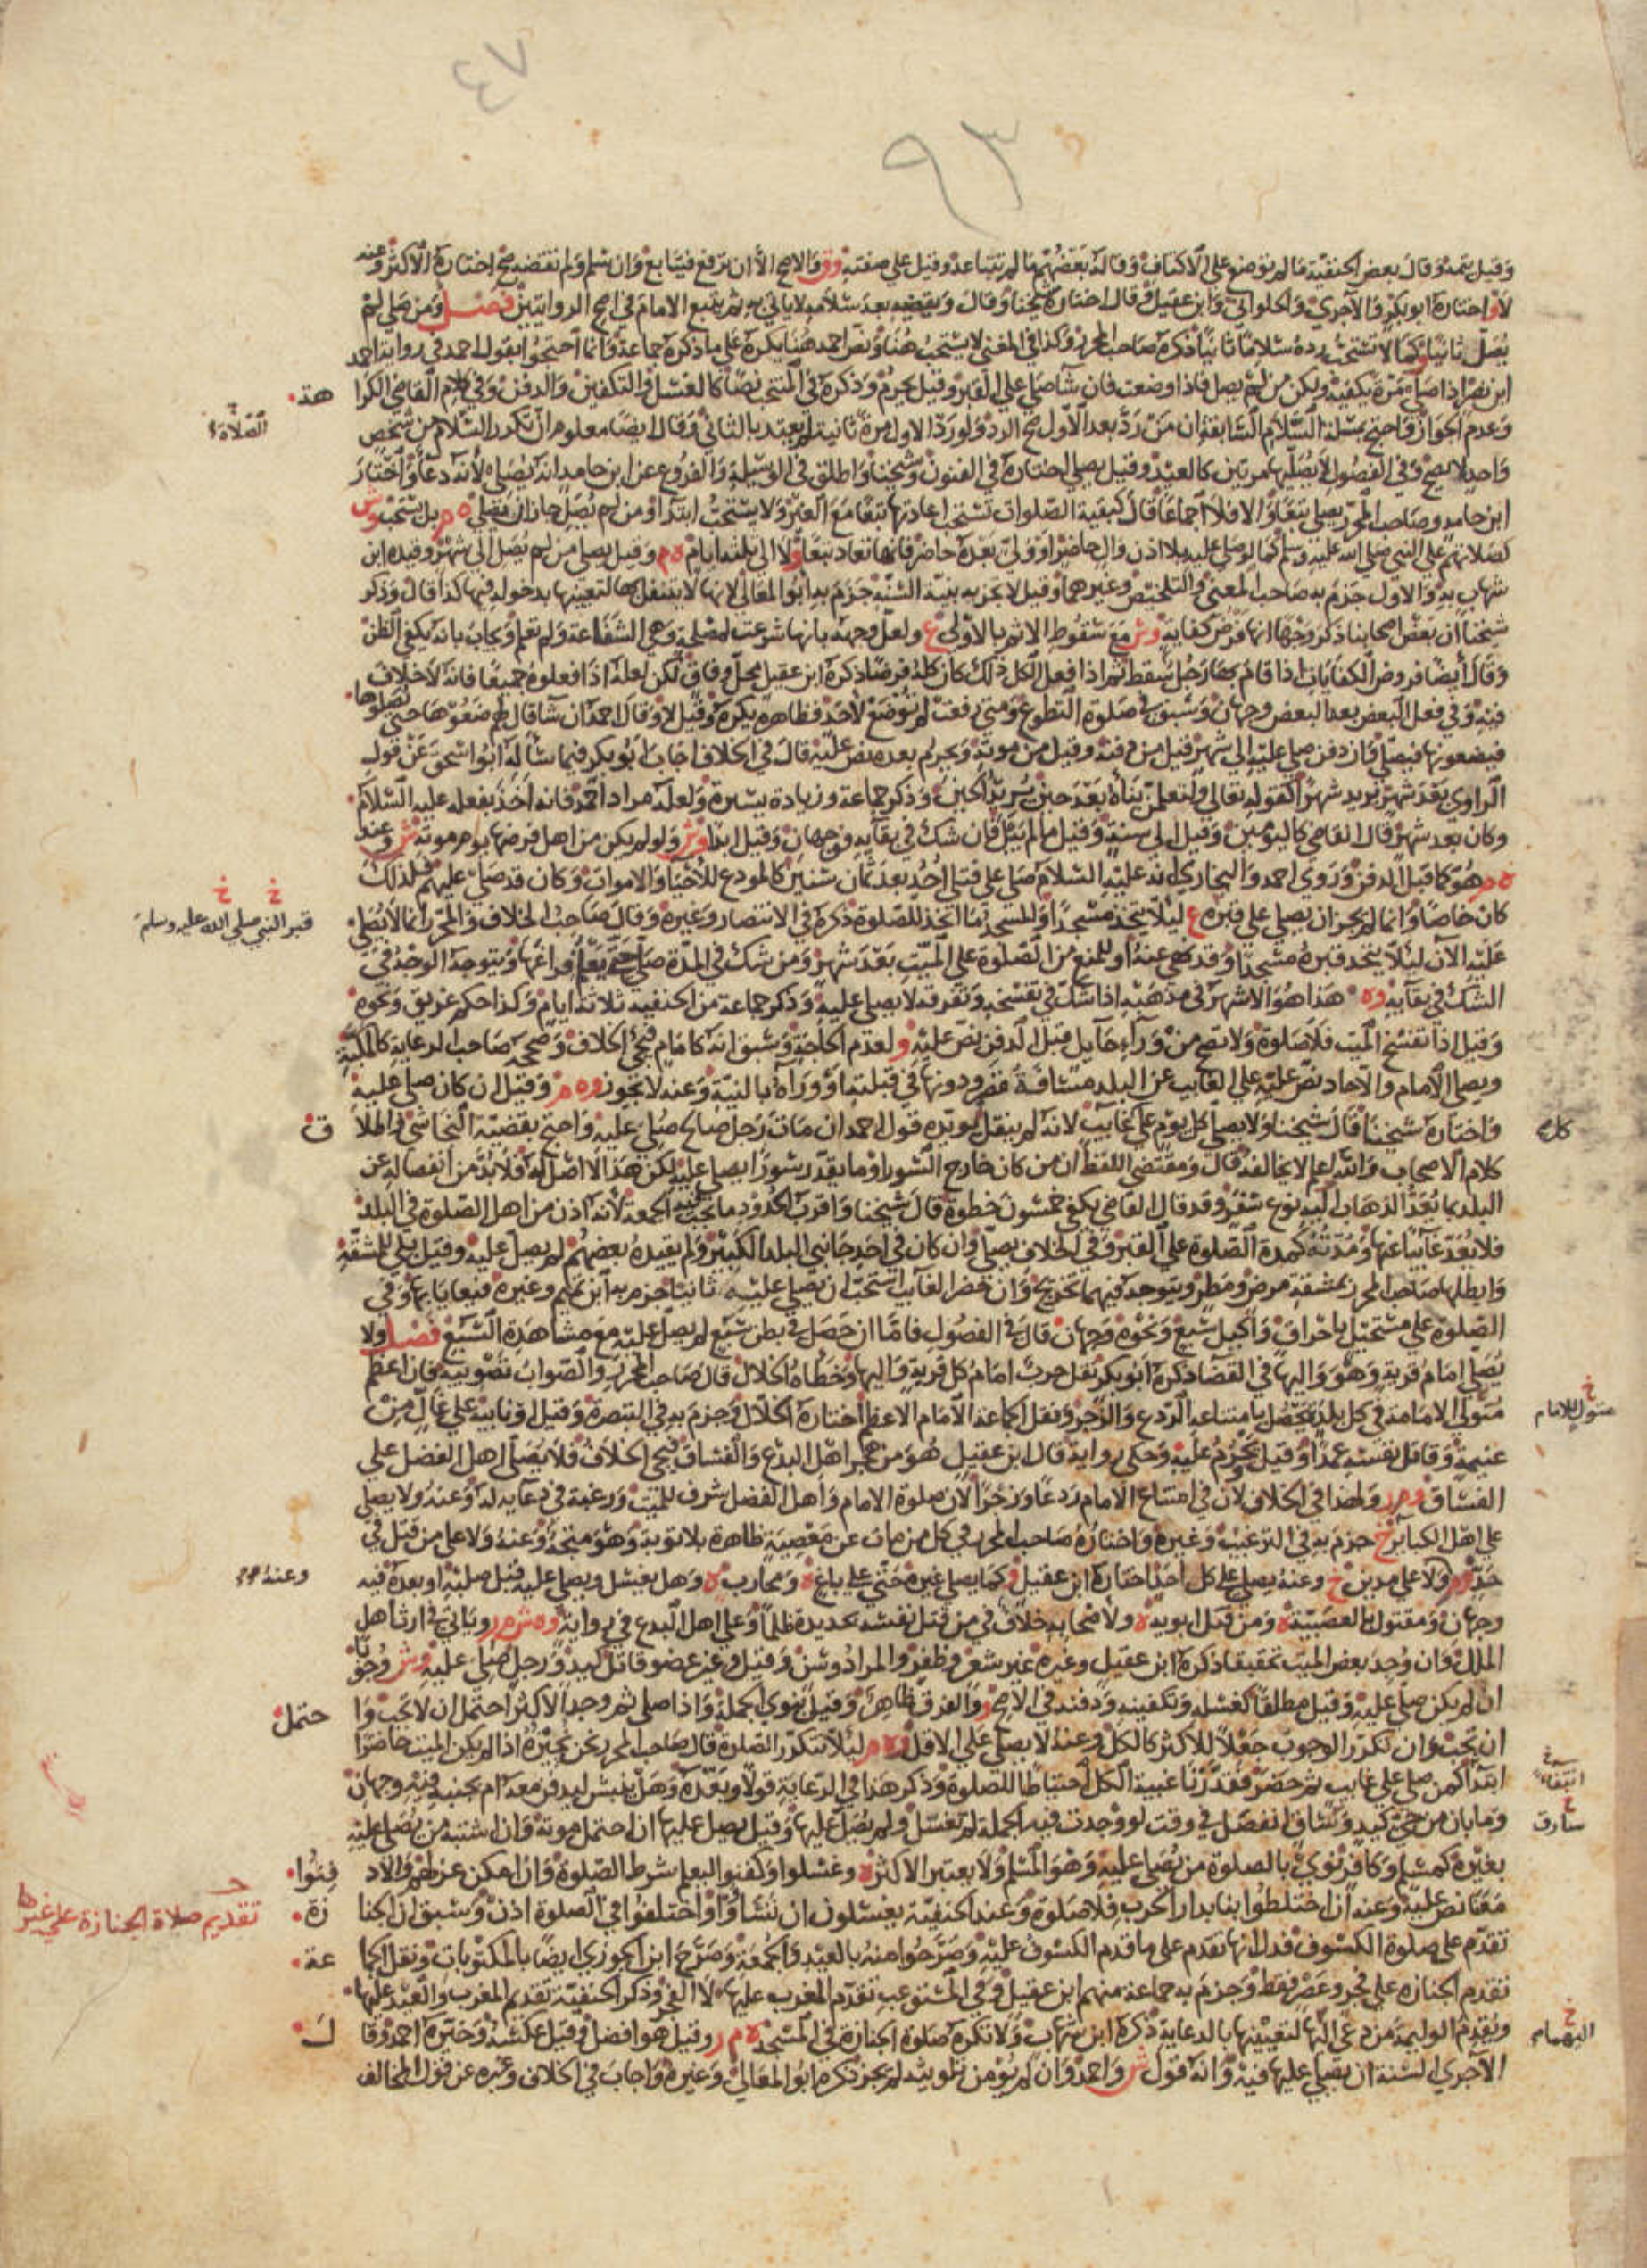 ٤٧
٩٣
وقيل يتمه وقال بعض الحنفية ما لم توضع على الاكتاف وقاله بعضهم ما لم تتباعد وقيل على صفته وق والاصح الا ان ترفع فيتابع وان سلم ولم يقضه صح اختاره الاكثر وعنه
لا و اختاره ابو بكر والآجري والحلواني وابن عقيل وقال اختاره شيخنا وقال ويقضيه بعد سلامه لا ياتي به ثم يتبع الامام في اصح الروايتين فصل ومن صلى لم
يصل ثانيا كما لا تستحب رده سلاما ثانيا ذكره صاحب المحرر وكذا في المغني لا يستحب هنا ونص احمد هنا يكره على ما ذكره جماعة وانما احتجوا بقول احمد في رواية احمد
ابن نصر اذا صلى مرة يكفيه ولكن من لم يصل فاذا وضعت فان شا صلى على القبر وقيل يحرم وذكره في المنتخب نصا كالغسل والتكفين والدفن وفي كلام القاضي الكرا هة
وعدم الجواز واحتج بمسلة السلام السابقة ان من رد بعد الاول صح الرد ولو رد الاول مرة ثانية لم يعتد بالثاني وقال ايضا معلوم ان تكرر السلام من شخص
الصلاة
واحد لا يصح وفي الفصول لا يصليها مرتين كالعيد وقيل يصلي اختاره في الفنون وشيخنا واطلق في الوسيلة والفروع عن ابن حامد انه يصلي لانه دعا واختار
ابن حامد وصاحب المحرر يصلي تبعا والا فلا اجماعا قال كبقية الصلوات تستحب اعادتها تبعا مع الغير ولا يستحب ابتدا ومن لم يصل جاز ان يصلي ه م بل يستحب وش
لصلاتهم على النبي صلى الله عليه وسلم كما لو صلى عليه بلا اذن وال حاضر او ولي بعده حاضر فانها تعاد تبعا ولا الى ثلثة ايام ه م وقيل يصلي من لم يصل الى شهر وقيده ابن
شهاب به والاول جزم به صاحب المغني والتلخيص وغيرهما وقيل لا يجزيه بنية السنة جزم به ابو المعالي لانها لا يتنفل بها لتعينها بدخوله فيها كذا قال وذكر
شيخنا ان بعض اصحابنا ذكر وجها انها فرض كفاية وش مع سقوط الاثم بالاولى ع ولعل وجهه بانها شرعت لمصلحة وهي الشفاعة ولم تعلم ويجاب بانه يكفي الظن
وقال ايضا فروض الكفايات اذا قام بها رجل سقط ثم اذا فعل الكل ذلك كان كله فرضا ذكره ابن عقيل محل وفاق لكن لعله اذا فعلوه جميعا فانه لا خلاف
فيه وفي فعل البعض بعد البعض وجهان وسبق في صلوة التطوع ومتى رفعت لم توضع لاحد فظاهره يكره وقيل لا وقال احمد ان شا قال لهم ضعوها حتى نصلي
فيضعونها فيصلي وان دفن صلى عليه الى شهر قيل من دفنه وقيل من موته ويحرم بعده نص عليه قال في الخلاف اجاب ابو بكر فيما سأله ابو اسحق عن قول
الراوي بعد شهر يريد شهرا كقوله تعالى ولتعلمن نبأه بعد حين يريد الحين وذكر جماعة وزيادة يسيرة ولعله مراد احمد فانه اخذ بفعله عليه السلام
وكان بعد شهر قال القاضي كاليومين وقيل الى سنة وقيل ما لم يبل فان شك في بقايه فوجهان وقيل ابدا وش ولو لم يكن من اهل فرضها يوم موته ش وعند
ه م هو كما قبل الدفن وروى احمد والبخاري انه عليه السلام صلى على قتلى احد بعد ثمان سنين كالمودع للاحيا والاموات وكان قد صلى عليهم فلذلك
كان خاصا وانما لم يجز ان يصلي على قبره ع ليلا يتخذ مسجدا والمسجد ما اتخذ للصلوة ذكره في الانتصار وغيره وقال صاحب الخلاف والمحرر انما لا يصلي
قبر النبي صلى الله عليه وسلم
عليه الآن ليلا يتخذ قبره مسجدا وقد نهي عنه او للمنع من الصلوة على الميت بعد شهر ومن شك في المدة صلى حتى يعلم فراغها ويتوجه الوجه في
الشك في بقايه وه هذا هو الاشهر في مذهبه اذا شك في تفسخه وتفرقه لا يصلي عليه وذكر جماعة من الحنفية ثلاثة ايام وكذا حكم غريق ونحوه
وقيل اذا تفسخ الميت فلا صلوة ولا تصح من وراء حايل قبل الدفن نص عليه و لعدم الحاجة وسبق انه كامام فيجي الخلاف وصححه صاحب الرعاية كالمكبة
ويصلي الامام والآحاد نص عليه على الغايب عن البلد مسافة قصر ودونها في قبلته او وراه بالنية وعنه لا تجوز وه م وقيل ان كان صلي عليه
واختاره شيخنا قال شيخنا ولا يصلي كل يوم على غايب لانه لم ينقل يويده قول احمد ان مات رجل صالح صلي عليه واحتج بقضية النجاشي واطلا ق
كلام الاصحاب والله اعلم لا يخالفه قال ومقتضى اللفظ ان من كان خارج السور او ما يقدر سورا يصلي عليه لكن هذا لا اصل له فلا بد من انفصاله عن
البلد بما يعد الذهاب اليه نوع سفر وقد قال القاضي يكفي خمسون خطوة قال شيخنا واقرب الحدود ما تجب فيه الجمعة لانه اذن من اهل الصلوة في البلد
فلا يعد غايبا عنها ومدته كمدة الصلوة على القبر وفي الخلاف يصلي وان كان في احد جانبي البلد الكبير ولم يقيده بعضهم لم يصل عليه وقيل بلى للمشقة
وابطلها صاحب المحرر بمشقة مرض ومطر ويتوجه فيهما تخريج وان حضر الغايب استحب ان يصلي عليه ثانيا جزم به ابن تميم وغيره فيعايا بها وفي
الصلوة على مستحيل باحراق واكيل سبع ونحوه وجهان قال في الفصول فاما ان حصل في بطن سبع لم يصل عليه مع مشاهدة السبع فصل ولا
يصلي امام قرية وهو واليها في القضا ذكره ابو بكر نقل حرب امام كل قرية واليها وخطاه الخلال قال صاحب المحرر والصواب تصويبه فان اعظم
متولي الامامة في كل بلد يحصل بامتناعه الردع والزجر ونقل الجماعة الامام الاعظم اختاره الخلال وجزم به في التبصرة وقيل ونايبه على غال من
متولي للامام
غنيمة وقاتل نفسه عمدا وقيل يحرم عليه وحكي رواية قال ابن عقيل هو من هجر اهل البدع والفساق فيجي الخلاف فلا يصلي اهل الفضل على
الفساق وم ر ولهذا في الخلاف لان في امتناع الامام ردعا وزجرا لان صلوة الامام واهل الفضل شرف للميت ورغبة في دعايه له وعنه ولا يصلي
على اهل الكباير خ جزم به في الترغيب وغيره واختاره صاحب المحرر في كل من مات عن معصية ظاهرة بلا توبة وهو متجه وعنه ولا على من قتل في
حد وم ولا على مدين خ وعنه يصلي على كل احد اختاره ابن عقيل وكما يصلي غيره حتى على باغ ه ومحارب ه وهل يغسل ويصلي عليه قبل صلبه او بعده فيه
وعنه
وجهان ومقتول بالعصبية ه ومن قتل ابويه ه ولاصحابه خلاف في من قتل نفسه بحديدة ظلما وعلى اهل البدع في رواية وه ش م ر وياتي في ارث اهل
الملل وان وجد بعض الميت تحقيقا ذكره ابن عقيل وغيره غير شعر وظفر والمراد وسن وقيل وغير عضو قاتل كيد ورجل صلي عليه وش وجوبا
ان لم يكن صلى عليه وقيل مطلقا كغسله وتكفينه ودفنه في الاصح ر والفرق ظاهر وقيل ينوي الجملة واذا صلي ثم وجد الاكثر احتمل ان لا تجب وا حتمل
ان تجب وان تكرر الوجوب جعلا للاكثر كالكل وعنه لا يصلي على الاقل وه م ليلا تتكرر الصلوة قال صاحب المحرر نحن نجيزه اذا لم يكن الميت حاضرا
ابتدا كمن صلى على غايب ثم حضر فقدرنا غيبة الكل احتياطا للصلوة وذكر هذا في الرعاية قولا وبعده وهل ينبش ليدفن معه ام بجنبه فيه وجهان
وما بان من حي كيد وساق انفصل في وقت لو وجدت فيه الجملة لم تغسل ولم يصل عليها وقيل يصلي عليها ان احتمل موته وان اشتبه من يصلى عليه
سارق
بغيره كمسلم وكافر نوى بالصلوة من يصلي عليه وهو المسلم ولا يعتبر الاكثر ه وغسلوا وكفنوا ليعلم شرط الصلوة وان امكن عزلهم والا د فنوا
معنا نص عليه وعنه ان اختلطوا بنا بدار الحرب فلا صلوة وعند الحنفية يغسلون ان تساووا واختلفوا في الصلوة اذن وسبق ان الجنا زة
تقديم صلاة الجنازة على غيرها
تقدم على صلوة الكسوف فدل انها تقدم على ما قدم الكسوف عليه وصرحوا منه بالعيد والجمعة وصرح ابن الجوزي ايضا بالمكتوبات ونقل الجما عة
تقدم الجنازه على فجر وعصر فقط وجزم به جماعة منهم ابن عقيل وفي المستوعب تقدم المغرب عليها لا الفجر وذكر الحنفية تقديم المغرب والعيد عليها
ويقدم الوليمة من دعي اليها لتعيينها بالدعاية ذكره ابن شهاب ولا تكره صلوة الجنازة في المسجد ه م ر وقيل هو افضل وقيل عكسه وخيره احمد وقا ل
الآجري السنة ان يصلي عليها فيه وانه قول ش واحمد وان لم يؤمن تلويثه لم يجز ذكره ابو المعالي وغيره واجاب في الخلاف وغيره عن قول المخالف